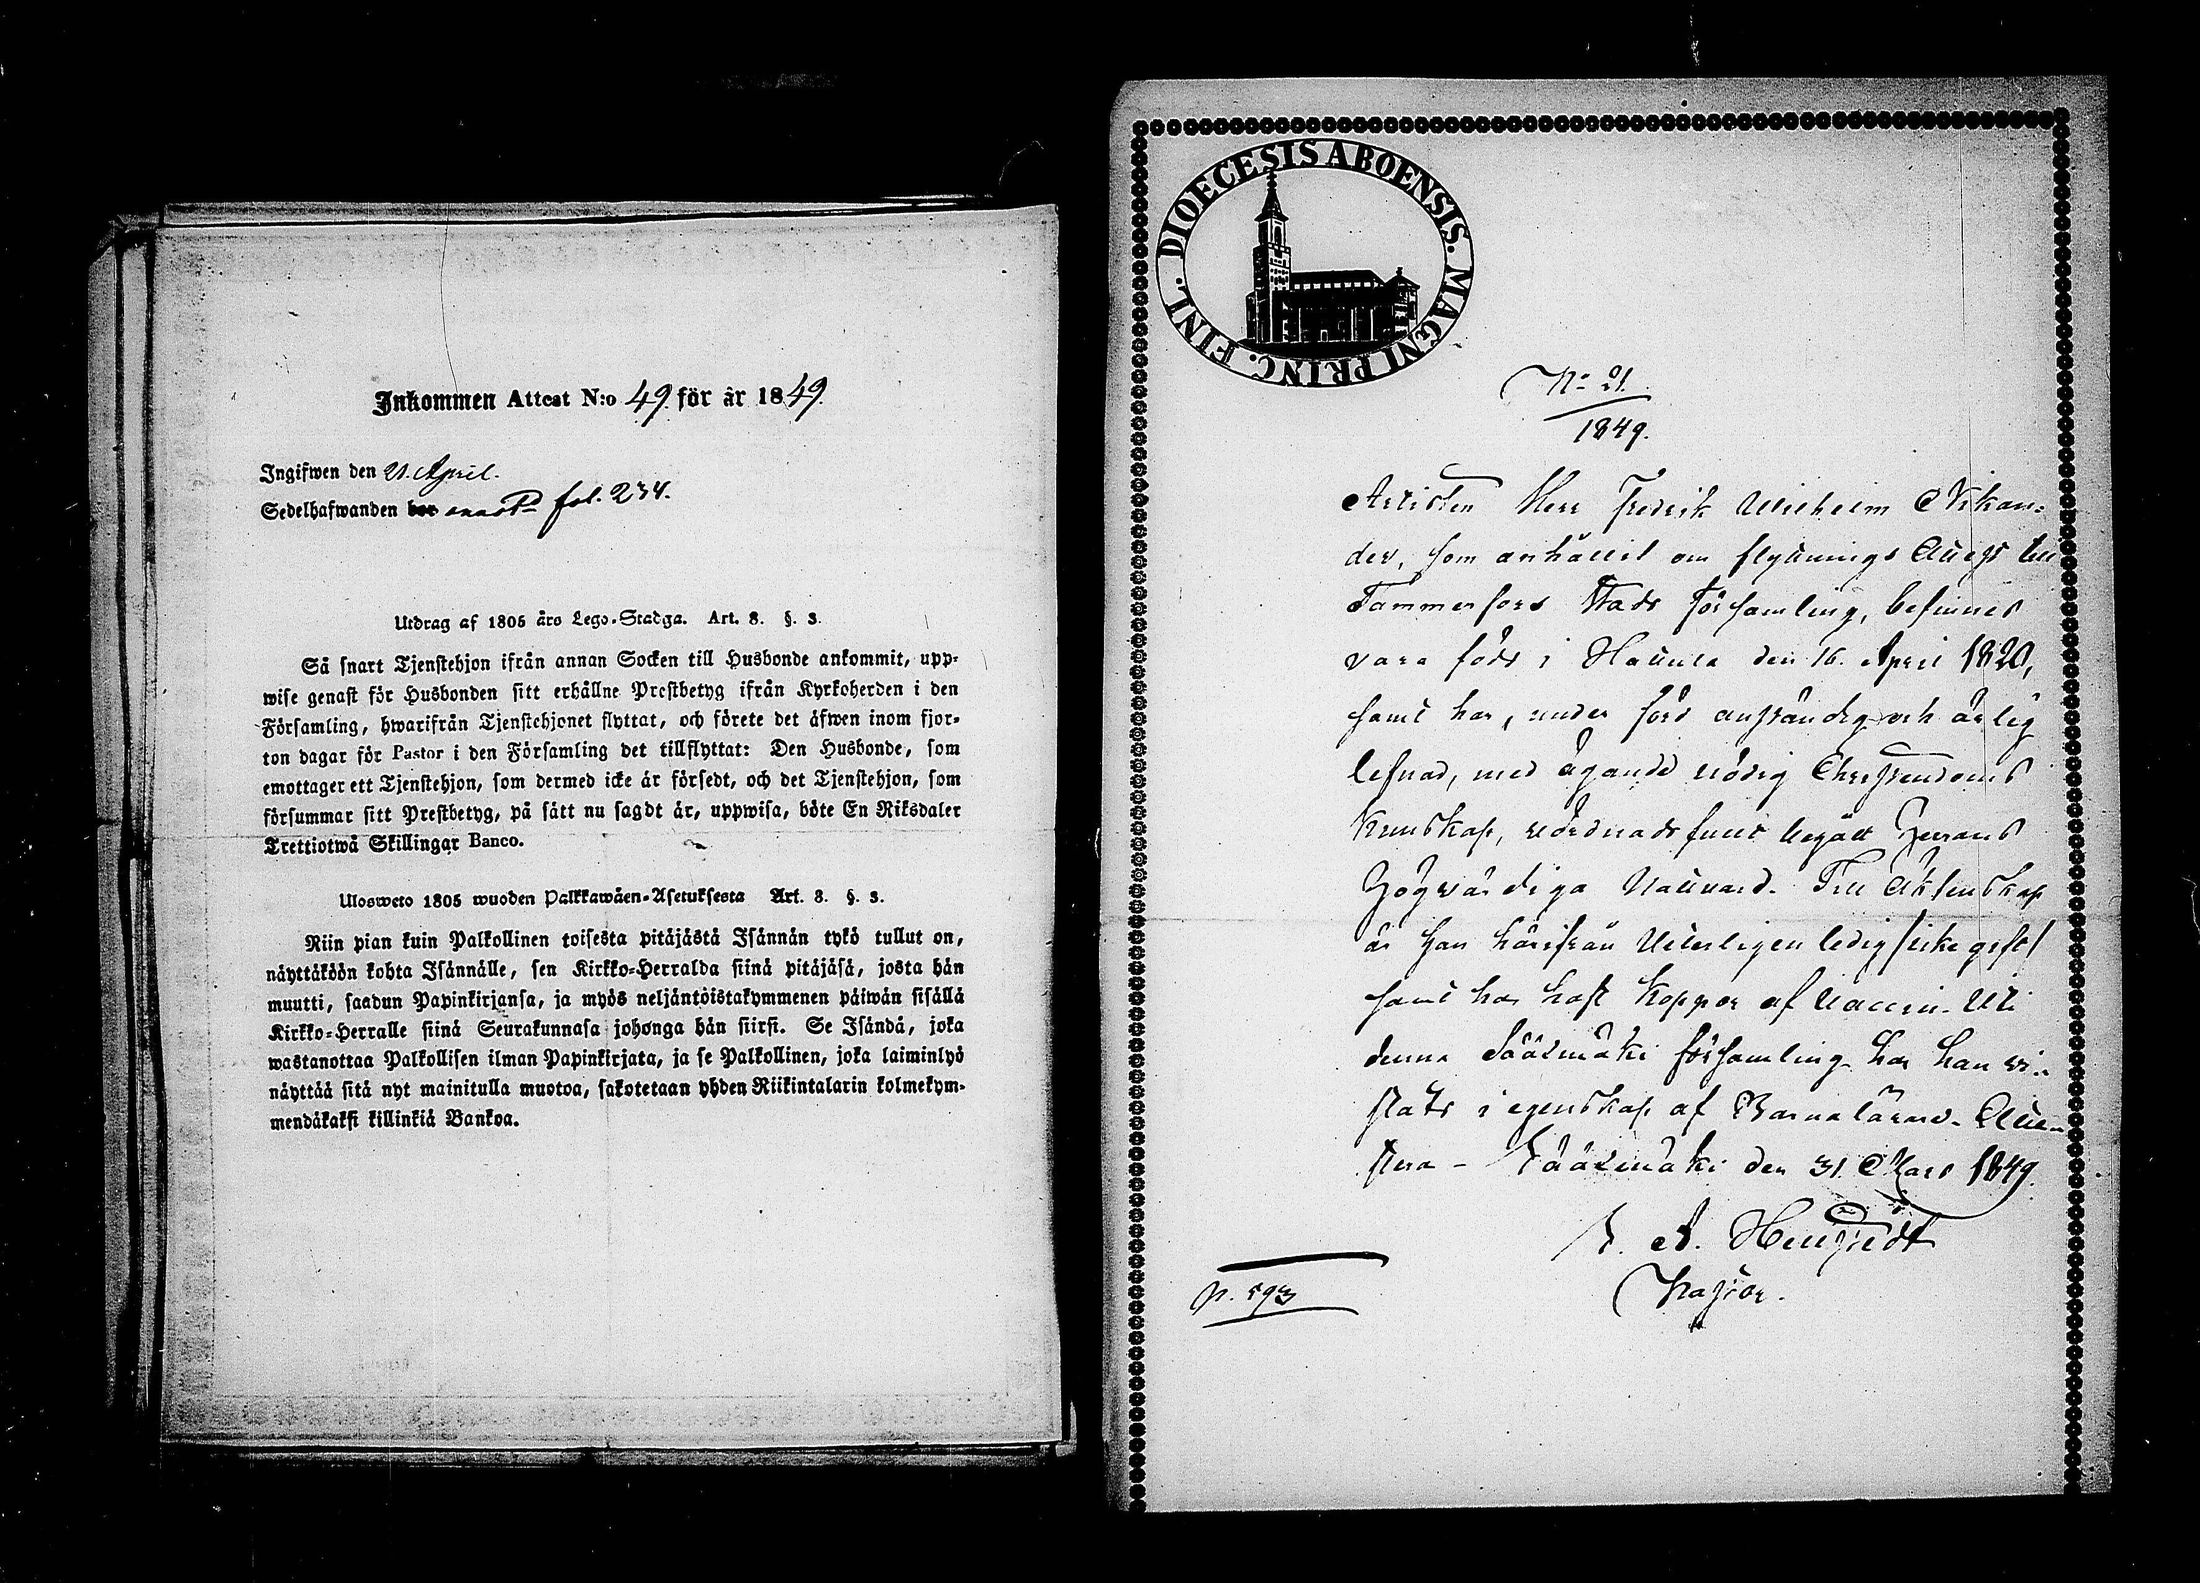 Inkommen Attest N:o 49. för år 1849.
Ingifwen den 21. April.
Sedelhafwanden bor fol. 234.
Utdrag af 1805 års Lego-Stadga. Art. 8. §. 3.
Så snart Tjenstehjon ifrån annan Socken till Husbonde ankommit, upp-
wise genast för Husbonden sitt erhållne Prestbetyg ifrån Kyrkoherden i den
Församling, hwarifrån Tjenstehjonet flyttat, och förete det äfwen inom fjor-
ton dagar för Pastor i den Församling det tillflyttat: Den Husbonde, som
emottager ett Tjenstehjon, som dermed icke är försedt, och det Tjenstehjon, som
försummar sitt Prestbetyg, på sätt nu sagdt är, uppwisa, böte En Riksdaler
Trettiotwå Skillingar Banco.
Ulosweto 1805 wuoden Palkkawäen-Asetuksesta Art. 8. §. 3.
Niin pian kuin Palkollinen toisesta pitäjästä Isännän tykö tullut on,
näyttäköön kohta Isännälle, sen Kirkko-Herralda siinä pitäjäsä, josta hän
muutti, saadun Papinkirjansa, ja myös neljäntöistakymmenen päiwän sisällä
Kirkko-Herralle siinä Seurakunnasa johonga hän siirsi. Se Isändä, joka
wastanottaa Palkollisen ilman Papinkirjata, ja se Palkollinen, joka laiminlyö
näyttää sitä nyt mainitulla muotoa, sakotetaan yhden Riikintalarin kolmekym-
mendäkaksi killinkiä Bankoa.
DIOECESIS ABOENSIS. MAGNI PRINC. FINL.
No 21.
1849.
Artisten Herr Fredrik Wilhelm Nikan-
der, som anhållit om flyttnings Attest till
Tammerfors Stads Församling, befinnes
vara född i Hattula den 16. April 1820,
samt har, under förd anständig och ärlig
lefnad, med ägande nödig Christendoms
Kunskap, vördnadsfullt begått Herrans
Högvärdiga Nattvard. Till Äktenskap
är han härifrån Veterligen ledig /icke gift/
samt har haft Koppor af Vaccin. Uti
denna Sääxmäki församling har han vi-
stats i egenskap af Barnalärare. Atte-
stera - Sääxmäki den 31. Mars 1849.
Pastor.
p. 593